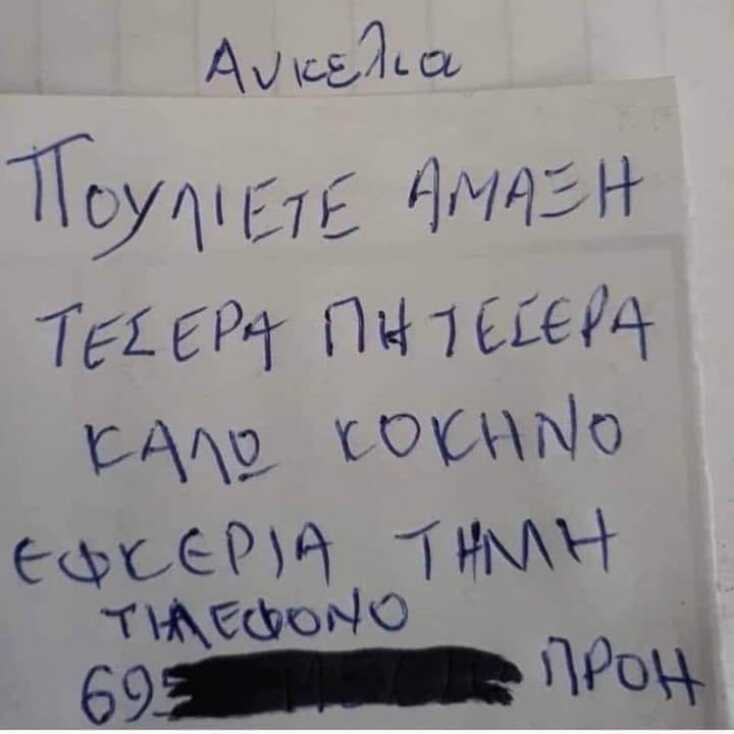 Ανκελια
ΠΟΥΛΙΕΤΕ ΑΜΑΞΗ
ΤΕΣΕΡΑ ΠΗ ΤΕΣΕΡΑ
ΚΑΛΩ ΚΟΚΗΝΟ
ΕΦΚΕΡΙΑ ΤΗΜΗ
ΤΙΛΕΦΟΝΟ
69 ΠΡΟΗ